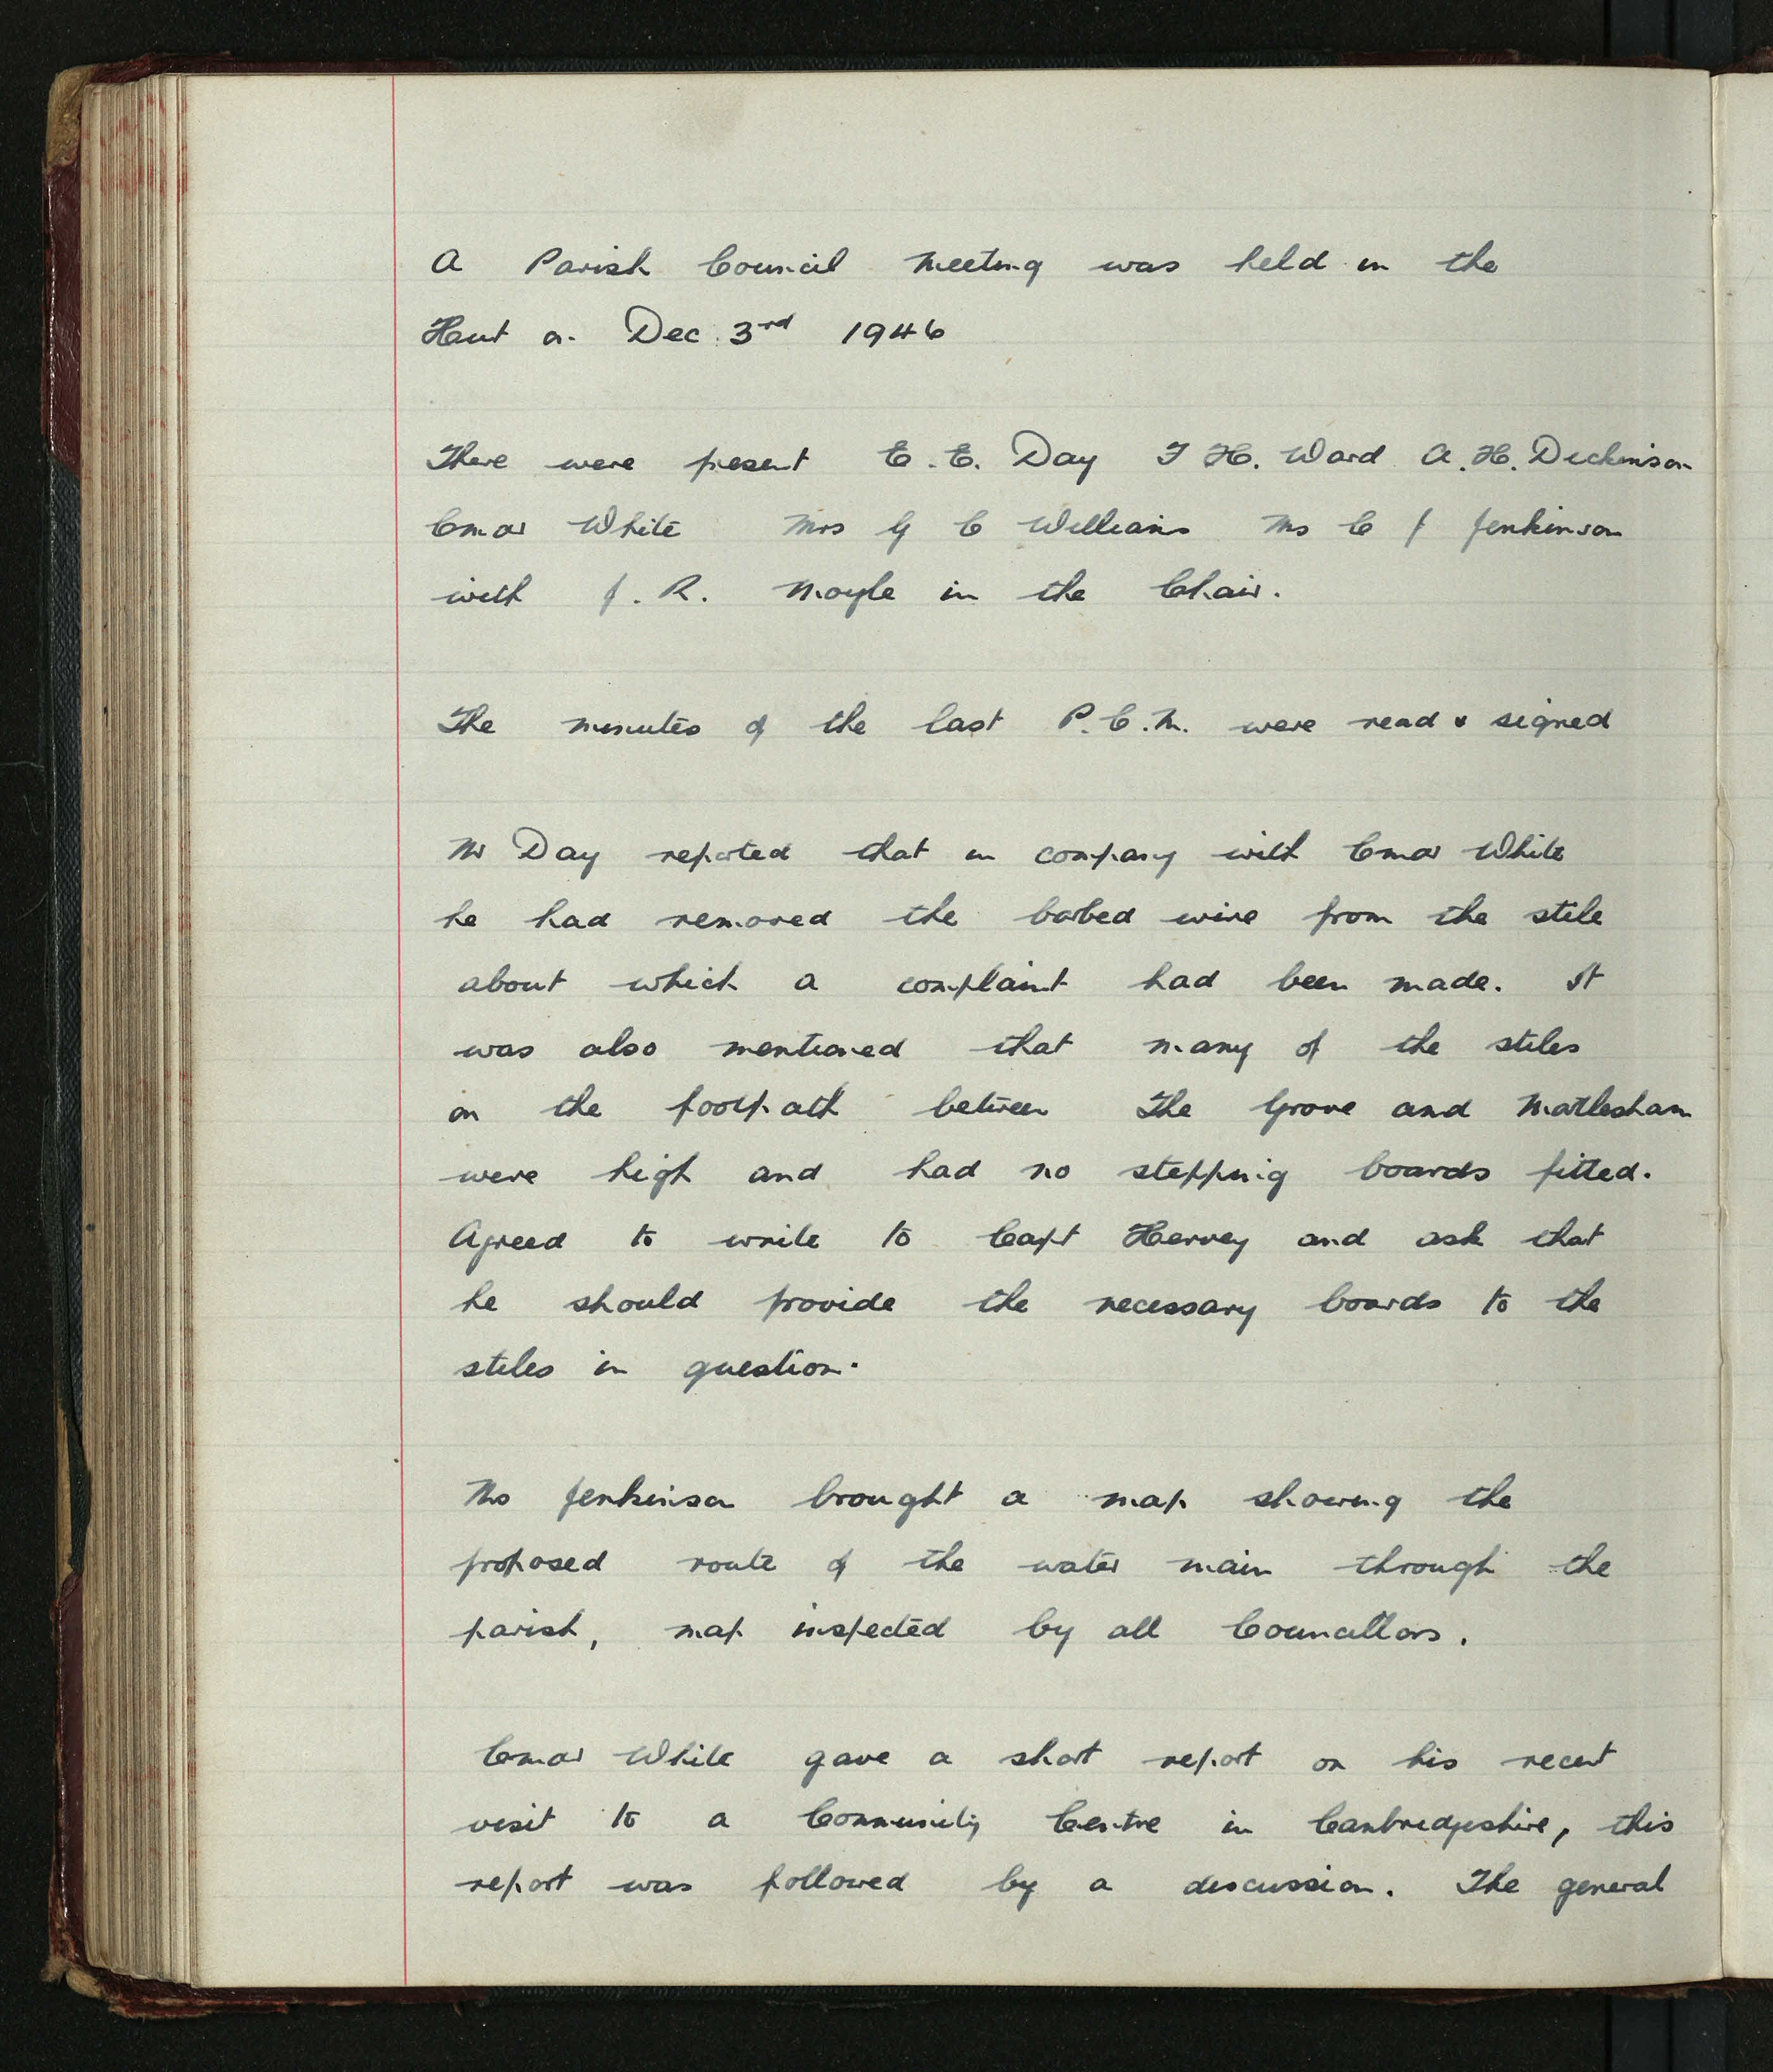 A Parish Council Meeting was held in the
Hut on Dec. 3rd 1946
There were present E.E. Day T H. Ward A.H. Dickinson
Cmdr White Mrs G C Williams Mrs C J Jenkinson
with J.R. Moyle in the Chair.
The minutes of the last P.C.M. were read & signed
Mr Day reported that in company with Cmdr White
he had removed the barbed wire from the stile
about which a complaint had been made. It
was also mentioned that many of the stiles
on the footpath between The Grove and Martlesham
were high and had no stepping boards fitted.
Agreed to write to Capt Hervey and ask that
he should provide the necessary boards to the
stiles in question.
Mrs Jenkinson brought a map showing the
proposed route of the water main through the
parish, map inspected by all Councillors.
Cmdr White gave a short report on his recent
visit to a Community Centre in Cambridgeshire, this
report was followed by a discussion. The general